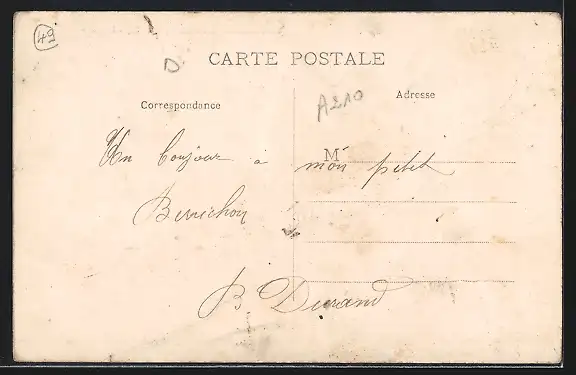 49
CARTE POSTALE
D
A210
Correspondance
Adresse
M
Un bonjour à mon petit
Berrichon
B Durand